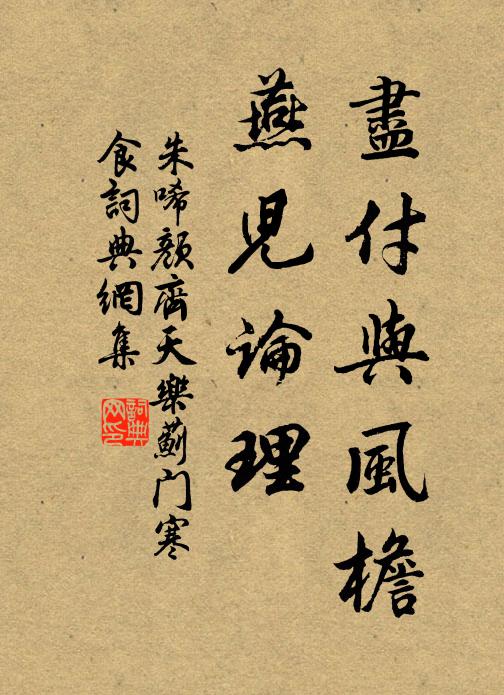 盡付與風檐
燕児論理
朱唏顏齊天樂薊門寒
食詞典網集
詞典
网印